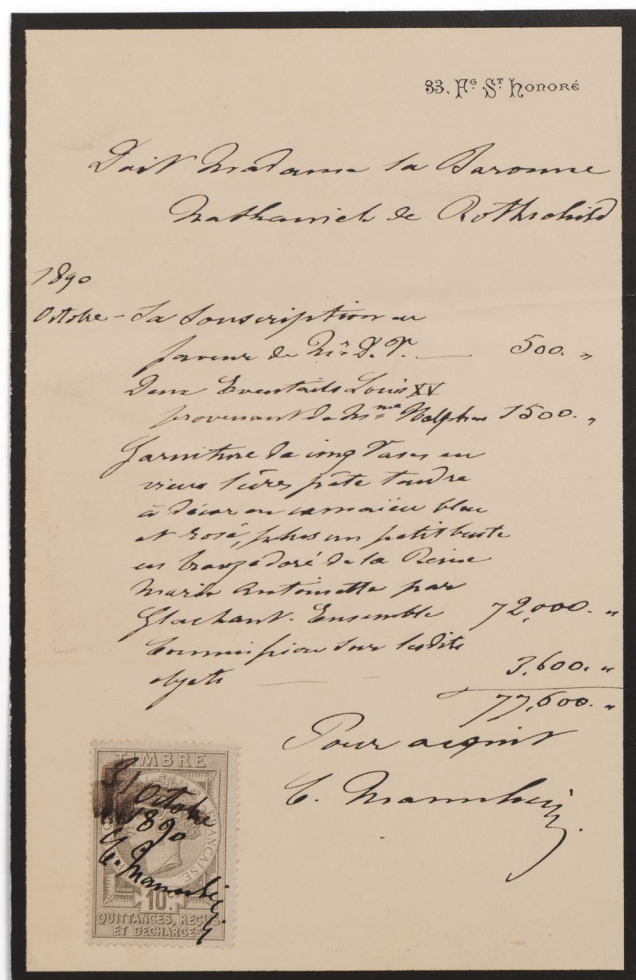 33, Fg. St. Honoré
Doit Madame la Baronne
Nathaniel de Rothschild
1890
Octobre - Sa Souscription en
faveur de Mr. D. T. 500. "
Deux Eventails Louis XV
provenant de Mme 1500. "
Garniture de cinq Vases en
vieux Sèvres pâte tendre
à décor en camaïeu bleu
et rosé, plus un petit buste
en bronze doré de la Reine
Marie Antoinette par
Ensemble 72,000. "
Commission sur lesdits
objets 3,600. "
77,600. "
Pour acquit
C. Mannheim
TIMBRE
31 Octobre
1890
C. Mannheim
FRANÇAISE
10c.
QUITTANCES, REÇUS
ET DÉCHARGES